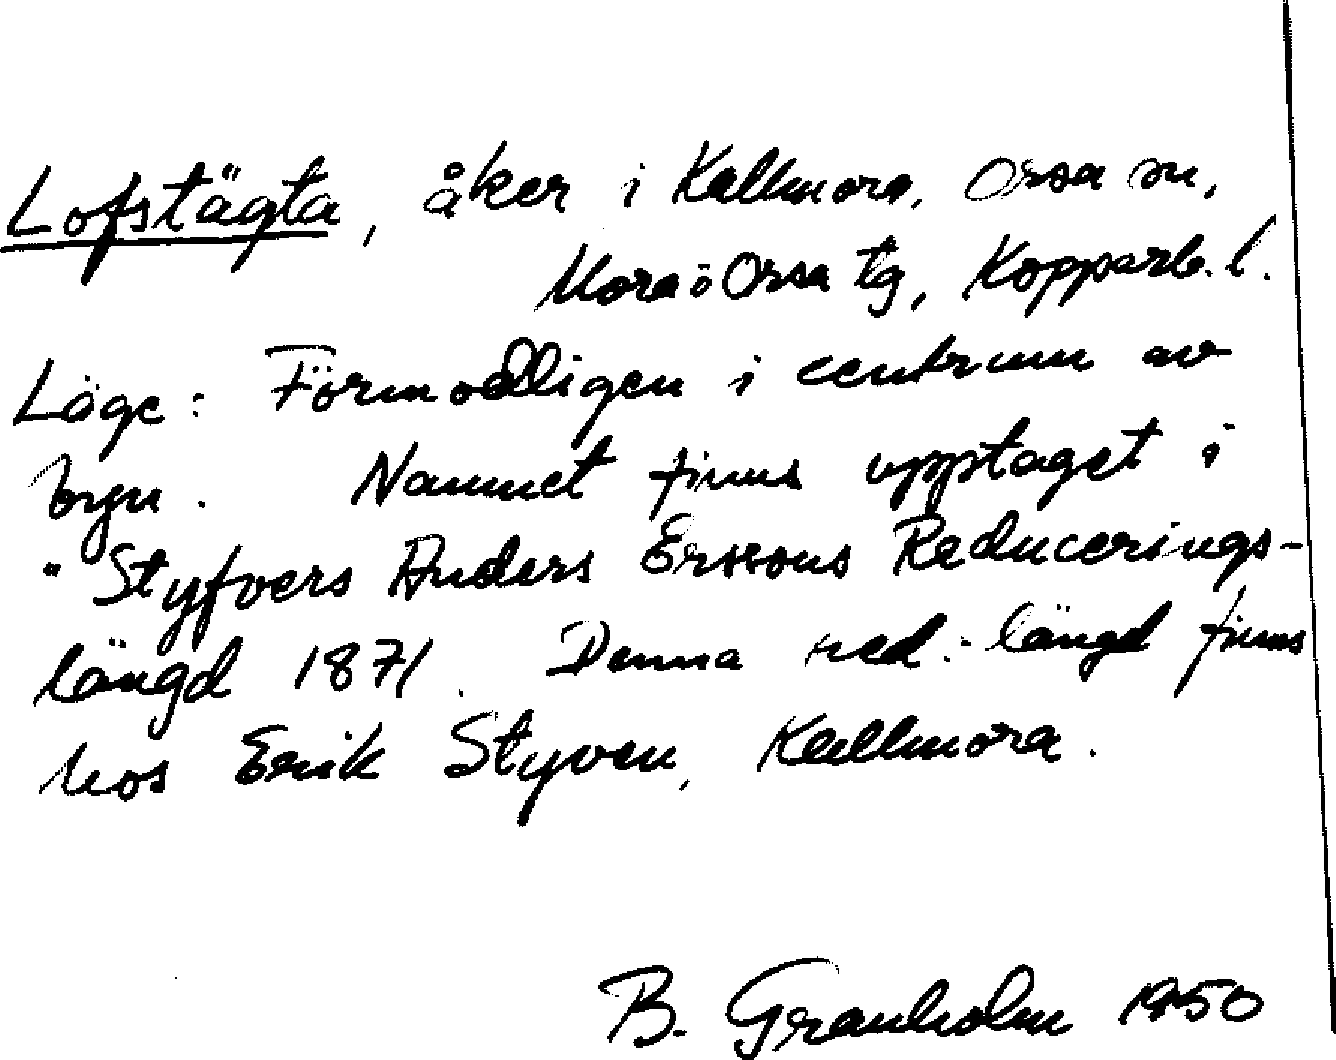 Lofstägta, åker i Kallmora, Orsa sn,
Mora ö Orsa tg, Kopparb. l.
Läge: Förmodligen i centrum av
byn. Namnet finns upptaget i
"Styfvers Anders Erssons Reducerings-
längd 1871. Denna red.-längd finns
hos Erik Styven, Kallmora.
B. Granholm 1950